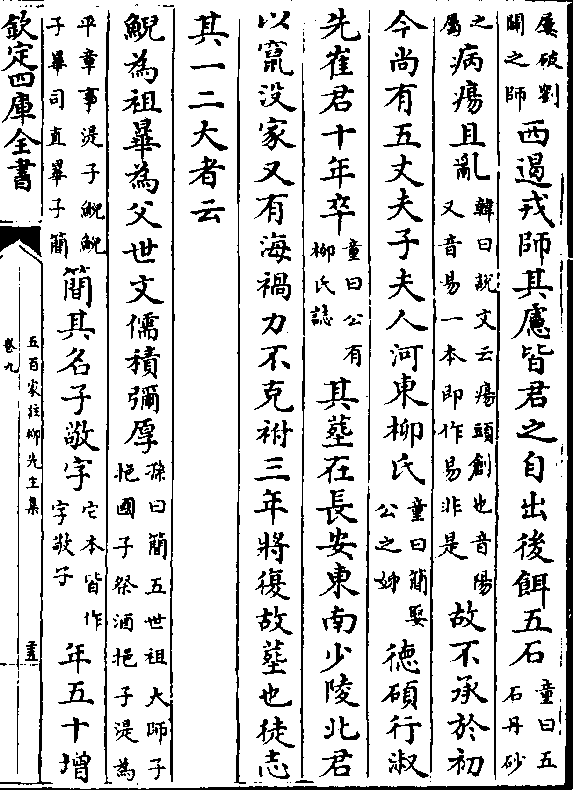 屢破劉
闢之師
西遏戎師其慮皆君之自出後餌五石
童曰五
石丹砂
之
屬
病瘍且亂
韓曰説文云瘍頭創也音陽
又音易一本即作易非是
故不承於初
今尚有五丈夫子夫人河東柳氏
童曰簡娶
公之姊
德碩行淑
先崔君十年卒
童曰公有
柳氏誌
其墓在長安東南少陵北君
以竄没家又有海禍力不克祔三年將復故墓也徒志
其一二大者云
鯢為祖曅為父世文儒積彌厚
孫曰簡五世祖大師子
挹國子祭酒挹子湜為
平章事湜子鯢鯢
子曅司直曅子簡
簡其名子敬字
它本皆作
字敬子
年五十增
欽定四庫全書
五百家註柳先生集
卷九